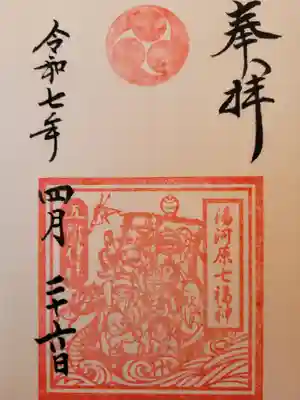 奉拝
湯河原七福神
令和七年
四月二十六日